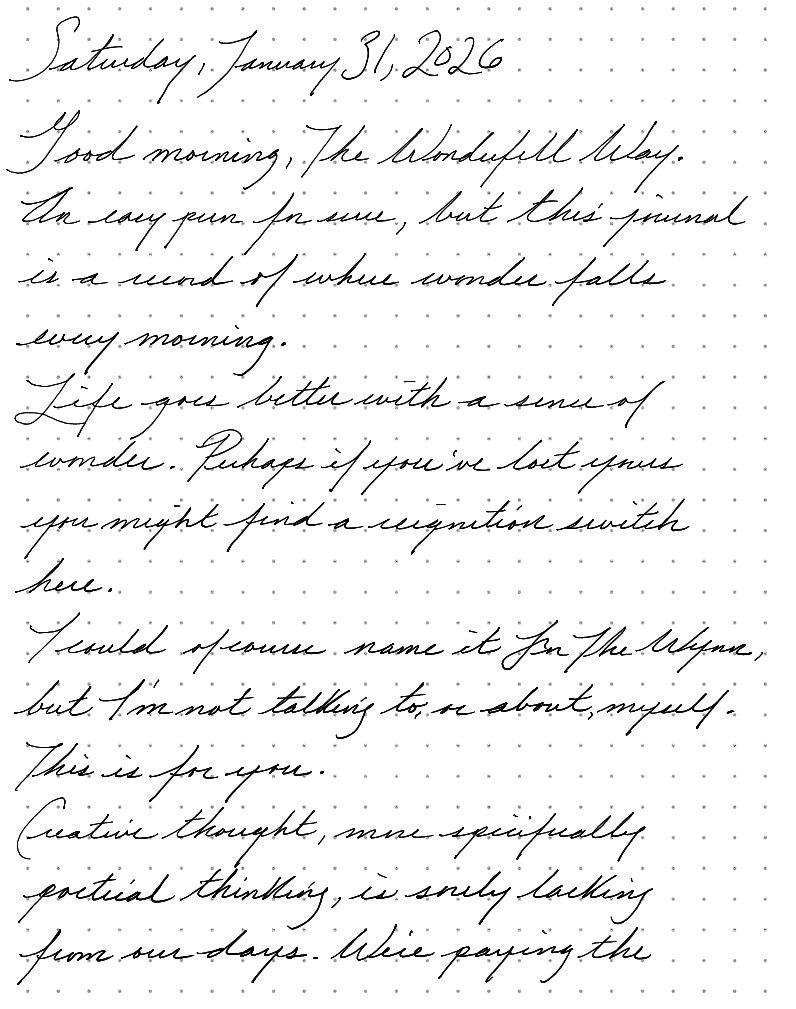 Saturday, January 31, 2026
Good morning, The Wonderfull Way.
An easy pun for sure, but this journal
is a record of where wonder falls
every morning.
Life goes better with a sense of
wonder. Perhaps if you've lost yours
you might find a reignition switch
here.
I could of course name it For The Wynn,
but I'm not talking to, or about, myself.
This is for you.
Creative thought, more specifically
poetical thinking, is sorely lacking
from our days. We're paying the